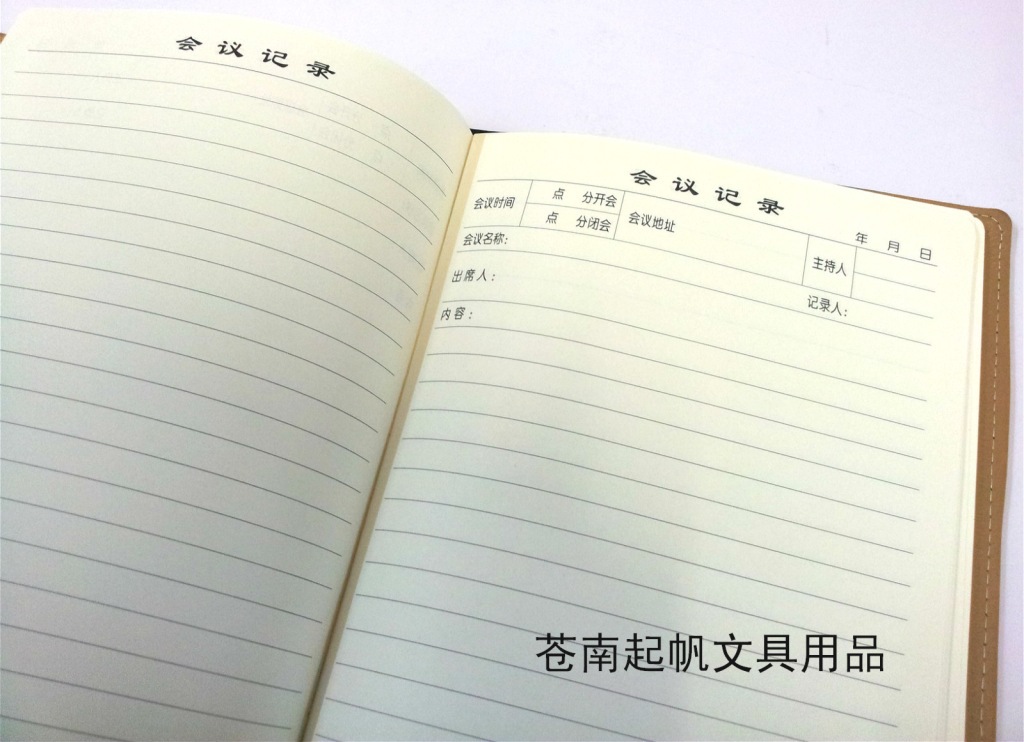 会议记录
会议记录
年 月 日
会议时间 点 分开会 会议地址 主持人
点 分闭会
会议名称: 记录人:
出席人:
内容:
苍南起帆文具用品